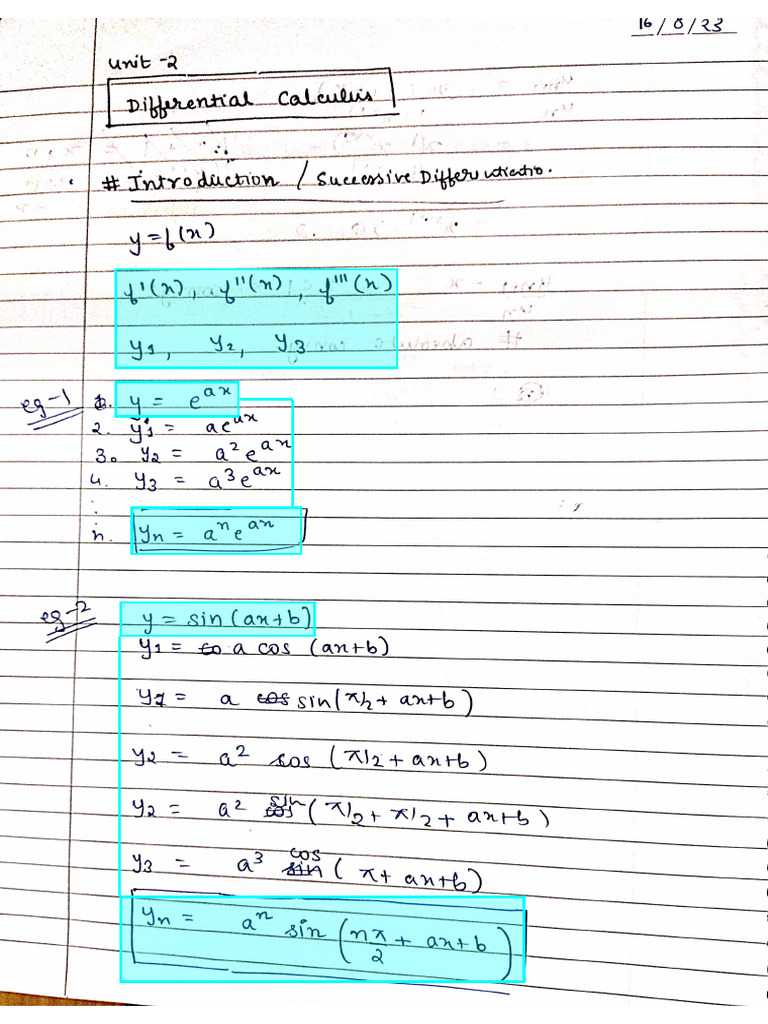 16/8/23
Unit -2
Differential Calculus
# Introduction / Successive Differentiatio.
y = f(x)
f'(x), f''(x), f'''(x)
y1, y2, y3
eg-1 1. y = e^ax
2. y1 = ae^ax
3. y2 = a^2 e^ax
4. y3 = a^3 e^ax
:
n. yn = a^n e^ax
eg-2 y = sin (ax+b)
y1 = a cos (ax+b)
y1 = a sin(π/2 + ax+b)
y2 = a^2 cos (π/2 + ax+b)
y2 = a^2 sin (π/2 + π/2 + ax+b)
y3 = a^3 cos (π + ax+b)
yn = a^n sin (nπ/2 + ax+b)